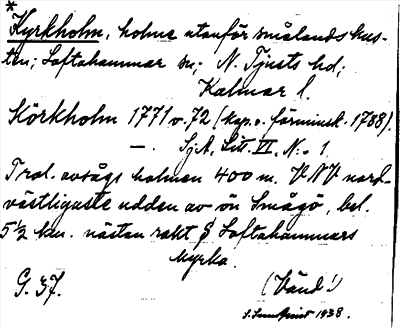 *
Kyrkholm, holme utanför smålandskus-
ten; Loftahammar sn; N. Tjusts hd;
Kalmar l.
Körkholm 1771 v. 72 (kop. o. förminsk. 1788).
—. Sj.A, Lit. II, N:o 1
Trol. avsågs holmen 400 m. VNV nord-
västligaste udden av ön Smågö, bel.
5½ km. nästan rakt S Loftahammars
kyrka.
G. 37. (Vänd!)
1938.